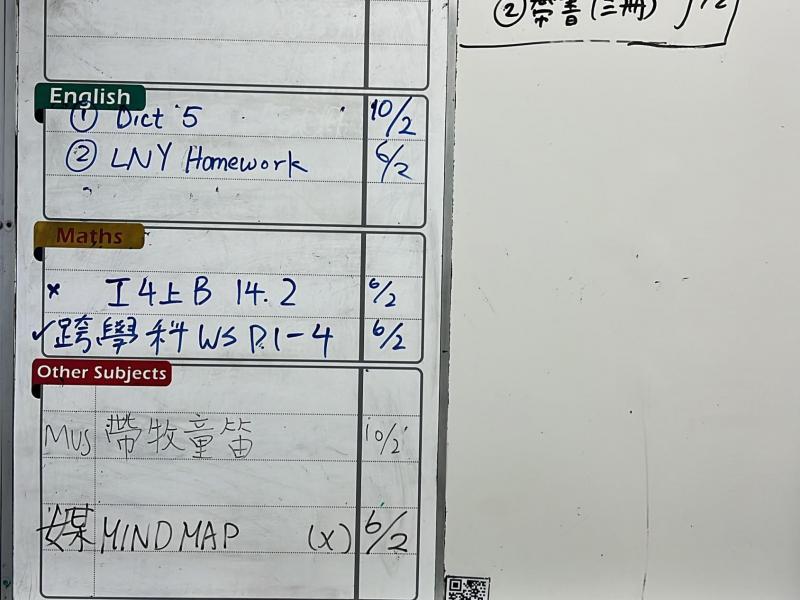 ② 帶書(三冊) 
English
① Dict 5 10/2
② LNY Homework 6/2
Maths
× 工4上B 14.2 6/2
✓跨學科 WS P.1-4 6/2
Other Subjects
MUS 帶牧童笛 10/2
媒 MINDMAP (X) 6/2